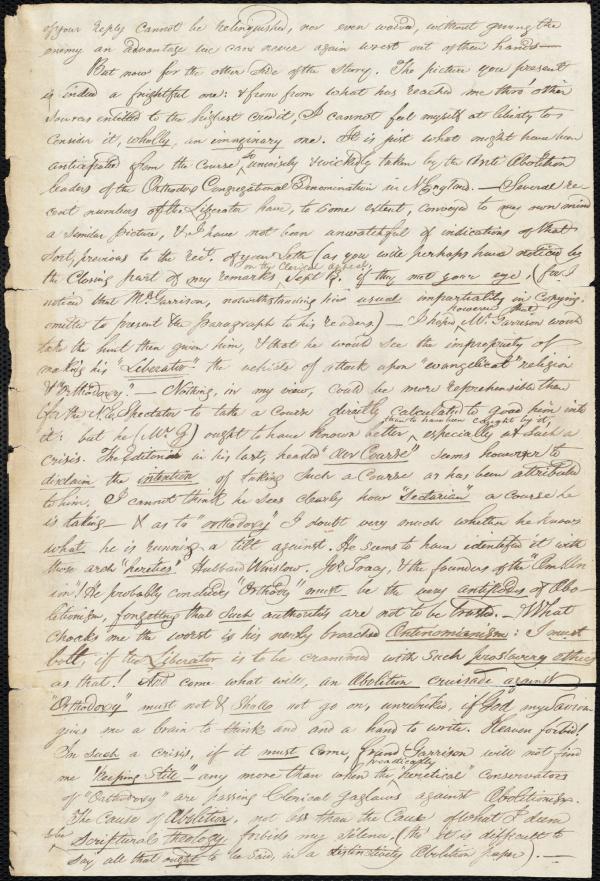 of your Reply cannot be relinquished, nor even waived, without giving the
enemy an advantage we can never again wrest out of their hands—
But now for the other side of the story. The picture you present
is indeed a frightful one: & from what has reached me thro' other
sources entitled to the highest credit, I cannot feel myself at liberty to
consider it, wholly, an imaginary one. It is just what might have been
anticipated from the course so unwisely & wickedly taken by the Anti Abolition
leaders of the Orthodox Congregational Denomination in N England. — Several re
cent numbers of the Liberator have, to some extent, conveyed to my own mind
a similar picture, & I have not been unwatchful of indications of that
sort, previous to the rect. of your Letter (as you will perhaps have noticed by
the closing part of my remarks on the Clerical appeal, Sept if they met your eye, (for I
noticed that Mr Garrison, notwithstanding his usual impartiality in copying,
omitted to present the paragraph to his readers.) — I hoped, however, that Mr. Garrison would
take the hint then given him, & that he would see the impropriety of
making his "Liberator" the vehicle of attack upon "evangelical" religion
& "Orthodoxy". — Nothing, in my view, could be more reprehensible than
for the N. E. Spectator to take a course directly calculated to goad him into
it: but he (Mr G) ought to have known better than to have been caught by it, especially at such a
crisis. The Editorial in his last, headed "Our Course" seems however to
disclaim the intention of taking such a course as has been attributed
to him. I cannot think he sees clearly how "Sectarian" a course he
is taking — & as to "orthodoxy" I doubt very much whether he knows
what he is running a tilt against. He seems to have identified it with
those arch "heretics" Hubbard Winslow, Jos. Tracy, & the founders of the "Am Un
ion"! He probably concludes "Orthodoxy" must be the very antipodes of Abo
litionism, forgetting that such authorities are not to be trusted. — What
chocks me the worst is his newly broached Antinomianism: I must
bolt, if the Liberator is to be crammed with such proslavery ethics
as that! And come what will, an Abolition cruisade against
"Orthodoxy" must not & shall not go on, unrebuked, if God my Saviour
gives me a brain to think and and a hand to write. Heaven forbid!
In such a crisis, if it must come, friend Garrison will not find
me "keeping still" — any more than when the practically "heretical" conservators
of "Orthodoxy" are passing Clerical gaglaws against Abolitionism.
The cause of Abolition, not less than the cause of what I deem
to be Scriptural theology forbids my silence. (tho' it is difficult to
say all that ought to be said, in a distinctively Abolition paper). —